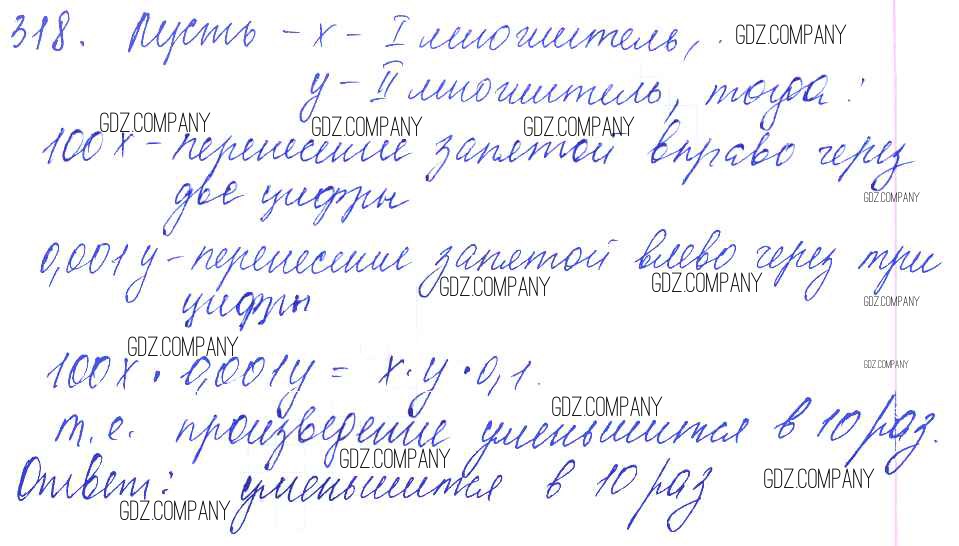 318. Пусть - x - I множитель, GDZ.COMPANY
y - II множитель, тогда:
GDZ.COMPANY GDZ.COMPANY GDZ.COMPANY
100x - перенесение запятой вправо через
две цифры GDZ.COMPANY
0,001y - перенесение запятой влево через три
GDZ.COMPANY GDZ.COMPANY
цифры GDZ.COMPANY
GDZ.COMPANY
100x · 0,001y = x · y · 0,1. GDZ.COMPANY
GDZ.COMPANY
т.е. произведение уменьшится в 10 раз.
GDZ.COMPANY
Ответ: уменьшится в 10 раз GDZ.COMPANY
GDZ.COMPANY